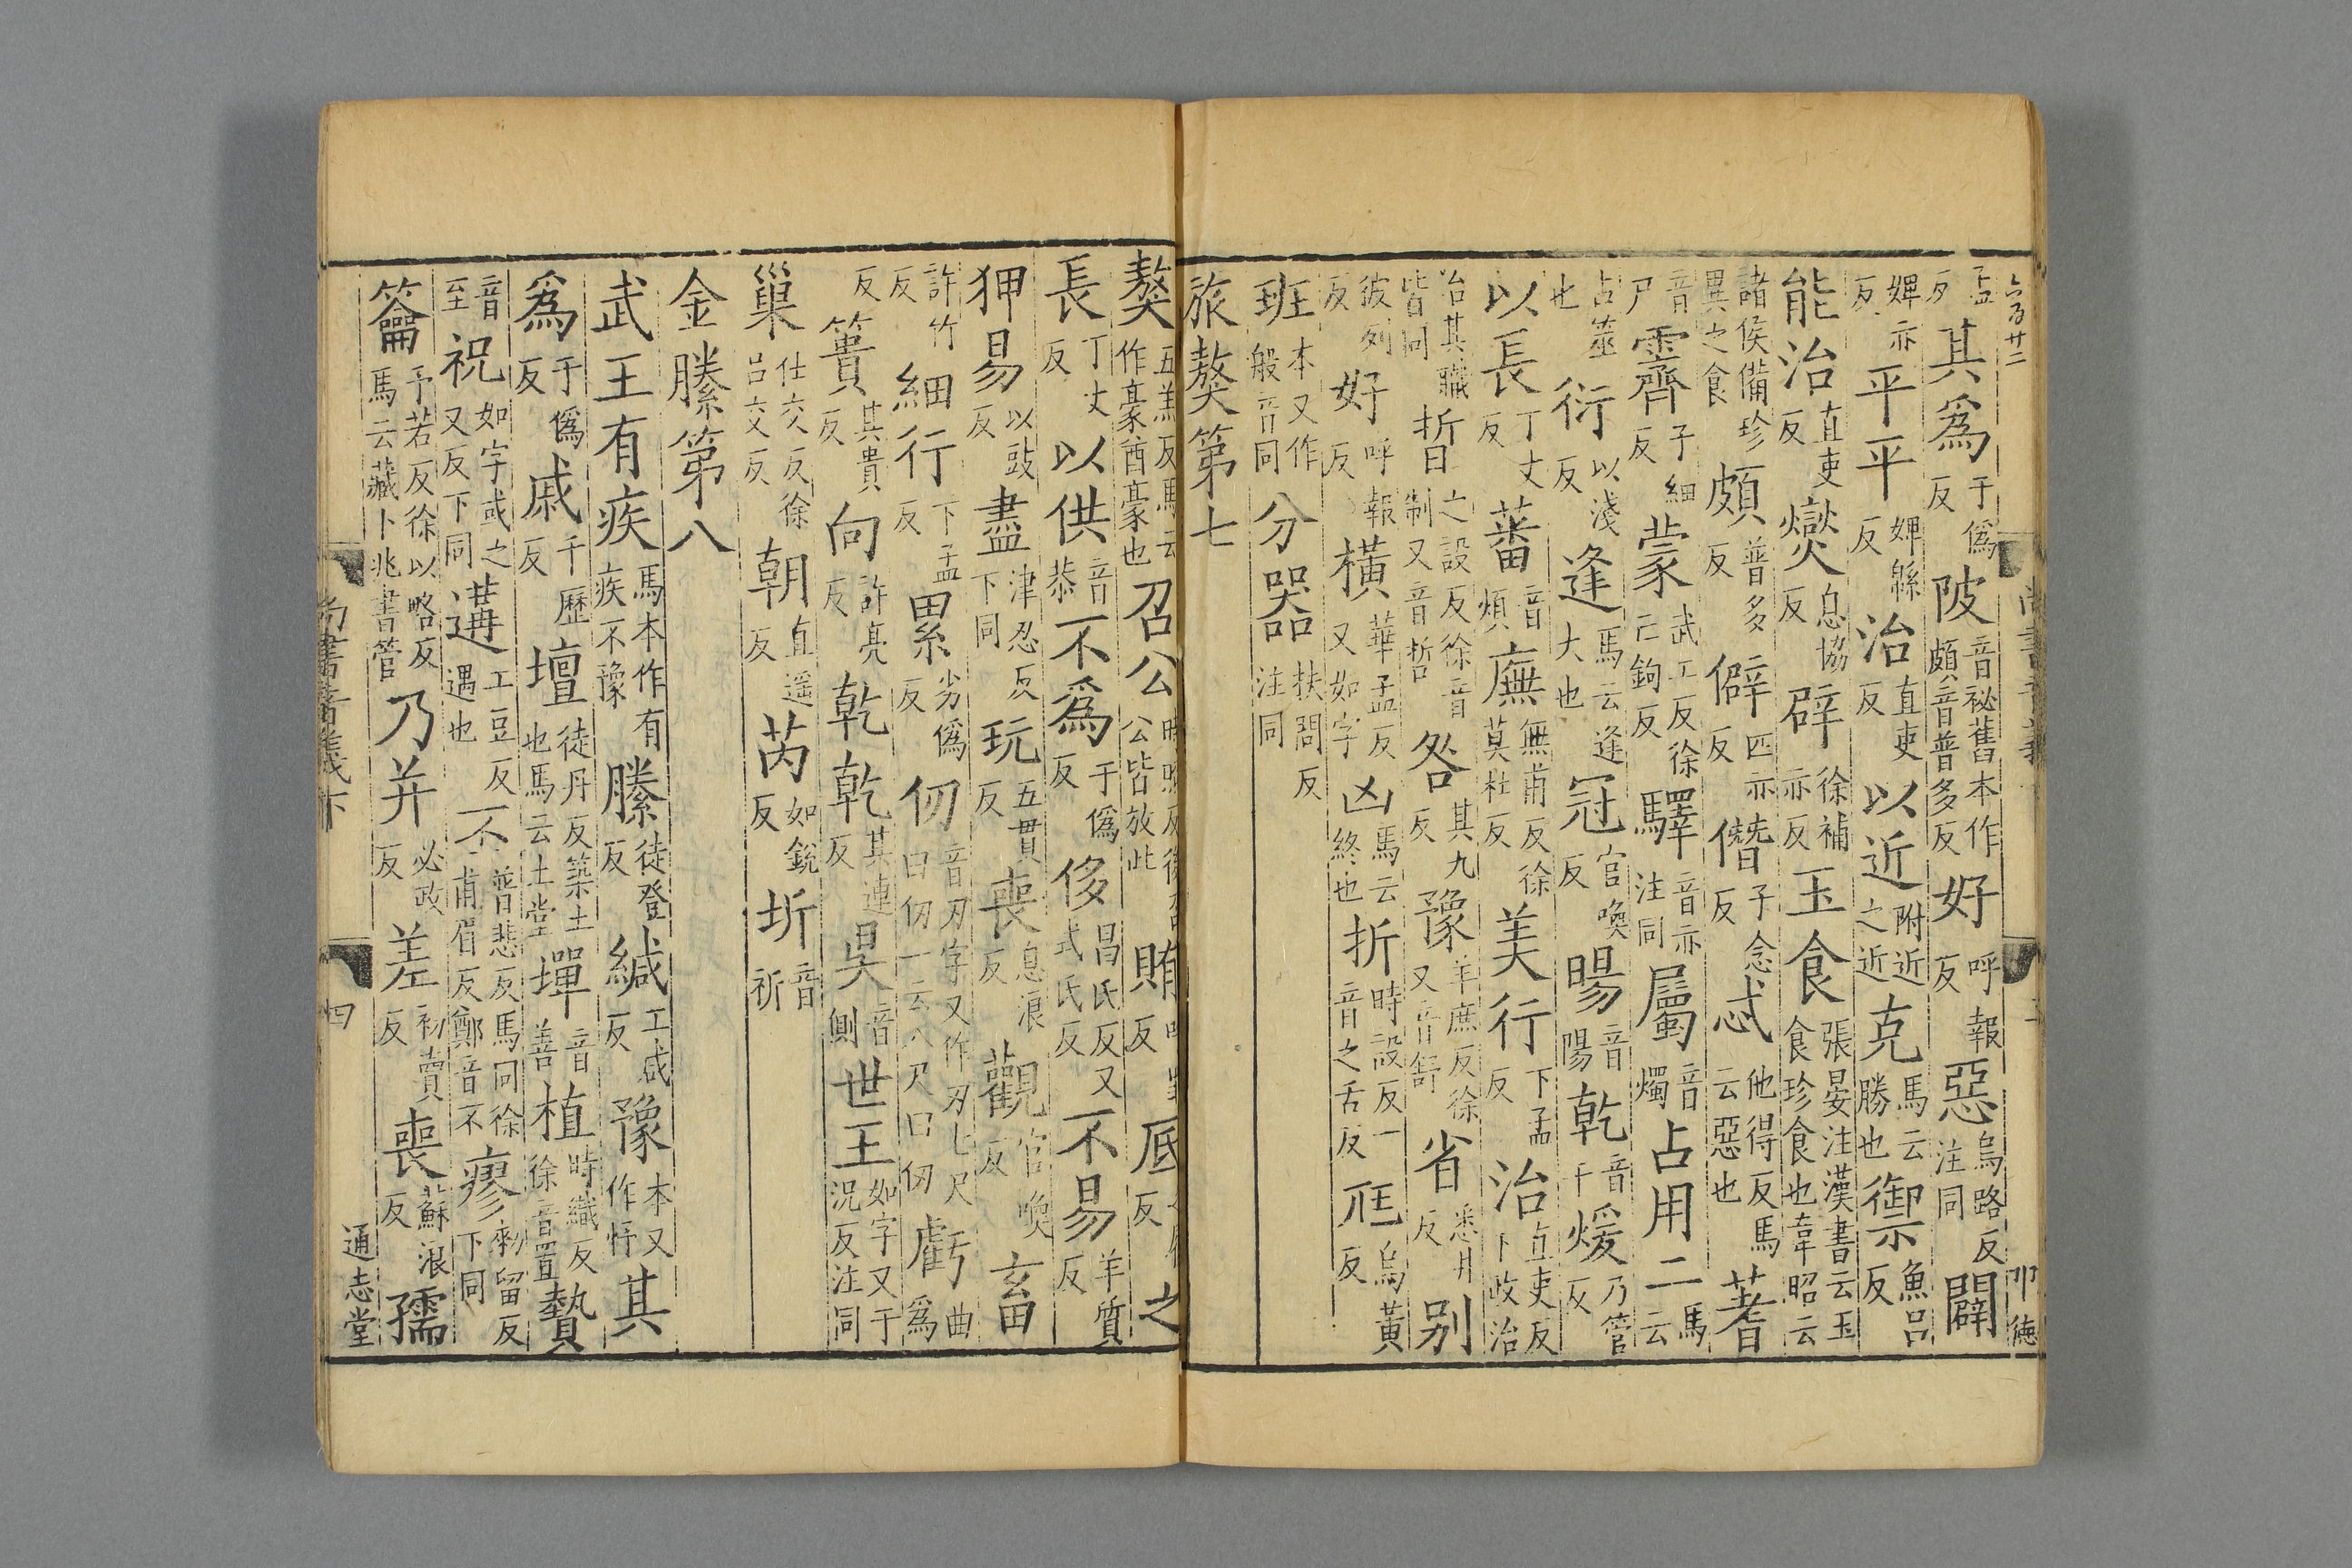 六百廿二
卬德
孟反其爲于僞反陂音祕舊本作頗音普多反好呼報反惡烏路反注同闢
婢亦反平平婢緜反治直吏反以近附近之近克馬云勝也御魚呂反
能治直吏反燮息協反辟徐補亦反玉食張晏注漢書云玉食珍食也韋昭云
諸侯備珍異之食頗普多反僻匹亦反僭子念反忒他得反馬云惡也蓍
音尸霽子細反蒙武工反徐亡鉤反驛音亦注同屬音燭占用二馬云
占筮也衍以淺反逢馬云逢大也冠官喚反暘音陽乾音干煖乃管反
以長丁丈反蕃音煩廡無甫反徐莫杜反美行下孟反治直吏反下政治
治其職皆同晢之設反徐音制又音哲咎其九反豫羊庶反徐又音舒省悉井反别
彼列反好呼報反橫華孟反又如字凶馬云終也折時設反一音之舌反尫烏黃反
班本又作般音同分器扶問反注同
旅獒第七
獒五羔反馬云作豪酋豪也召公公皆放此賄反厎反之
長丁丈反以供音恭不爲于僞反侈昌氏反又式氏反不易羊質反
狎易以豉反盡津忍反下同玩五貫反喪息浪反觀官喚反畜
許竹反細行下孟反累劣僞反仞音刃字又作刃七尺曰仞一云八尺曰仞虧曲爲
反簣其貴反向許亮反乾乾其連反昃音側世王如字又于況反注同
巢仕交反徐呂交反朝直遥反芮如銳反圻音祈
金縢第八
武王有疾馬本作有疾不豫縢徒登反緘工咸反豫本又作忬其
爲于僞反戚千歷反壇徒丹反築土也馬云土堂墠音善植時織反徐音置贄
音至祝如字或之又反下同遘工豆反遇也丕普悲反馬同徐甫眉反鄭音不瘳勑留反下同
籥予若反徐以略反馬云藏卜兆書管乃并必政反差初賣反喪蘇浪反孺
尚書音義下
四
通志堂